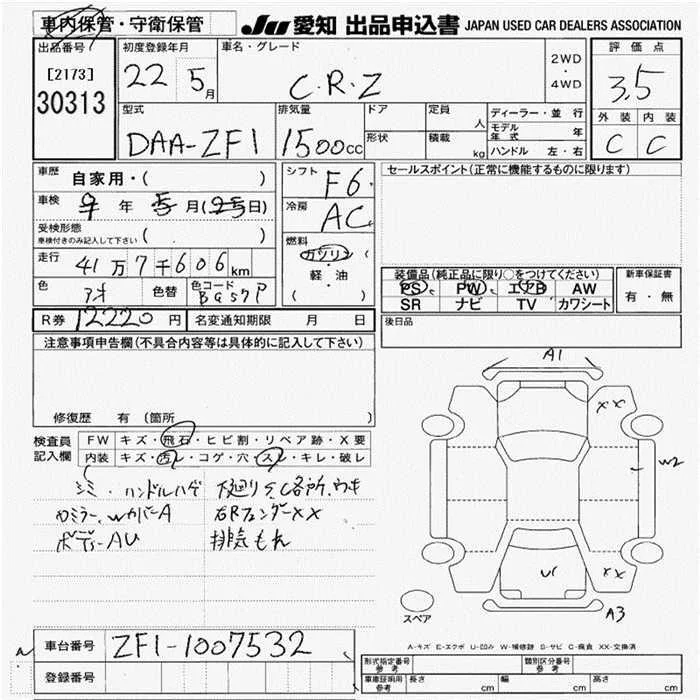 車内保管・守衛保管
JU 愛知 出品申込書 JAPAN USED CAR DEALERS ASSOCIATION
出品番号
[2173]
30313
初度登録年月
22 5月
車名・グレード
C・R・Z
2WD
・
4WD
評価点
3.5
外装 内装
C C
型式
DAA-ZF1
排気量
1500cc
ドア
形状
定員
人
積載
kg
ディーラー・並行
モデル年式 年
ハンドル 左・右
車歴
自家用・( )
車検
年 月( 日)
受検形態
車検付きのみ記入して下さい ( )
走行
41万7千606km
色
アオ
色替
色コード
BG57P
シフト
F6
冷房
AC
燃料
ガソリン
・
軽・油
( )
セールスポイント(正常に機能するものに限ります)
装備品(純正品に限り○をつけてください)
PS PW エアB AW
SR ナビ TV カワシート
新車保証書
有・無
R券 12220円
名変通知期限 月 日
後日品
注意事項申告欄(不具合内容等は具体的に記入して下さい)
修復歴 有 (箇所
検査員
記入欄
FW キズ・飛石・ヒビ割・リペア跡・X要
内装 キズ・汚レ・コゲ・穴・スレ・キレ・破レ
シミ・ハンドルハゲ 下廻りS,C各所,ウキ
ロミラー,WカバーA 右RフェンダーXX
ボディーAU 排気もれ
A1
XX
W2
XX
U
A3
スペア
A-キズ E-エクボ U-凹み W-補修跡 S-サビ C-腐食 XX-交換済
車台番号 ZF1-1007532
登録番号
形式指定番号
参考
類別区分番号
参考
車庫証明用
参考
長さ cm 幅 cm 高さ cm